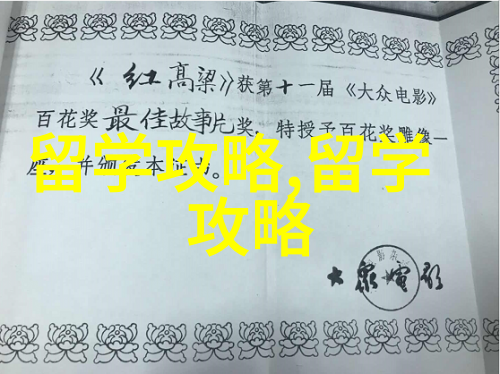 《红高粱》获第十一届《大众电影》
百花奖最佳故事片奖，特授予百花奖雕像一
座，并颁发本证书。
留学攻略,留学
攻略
大眾電影